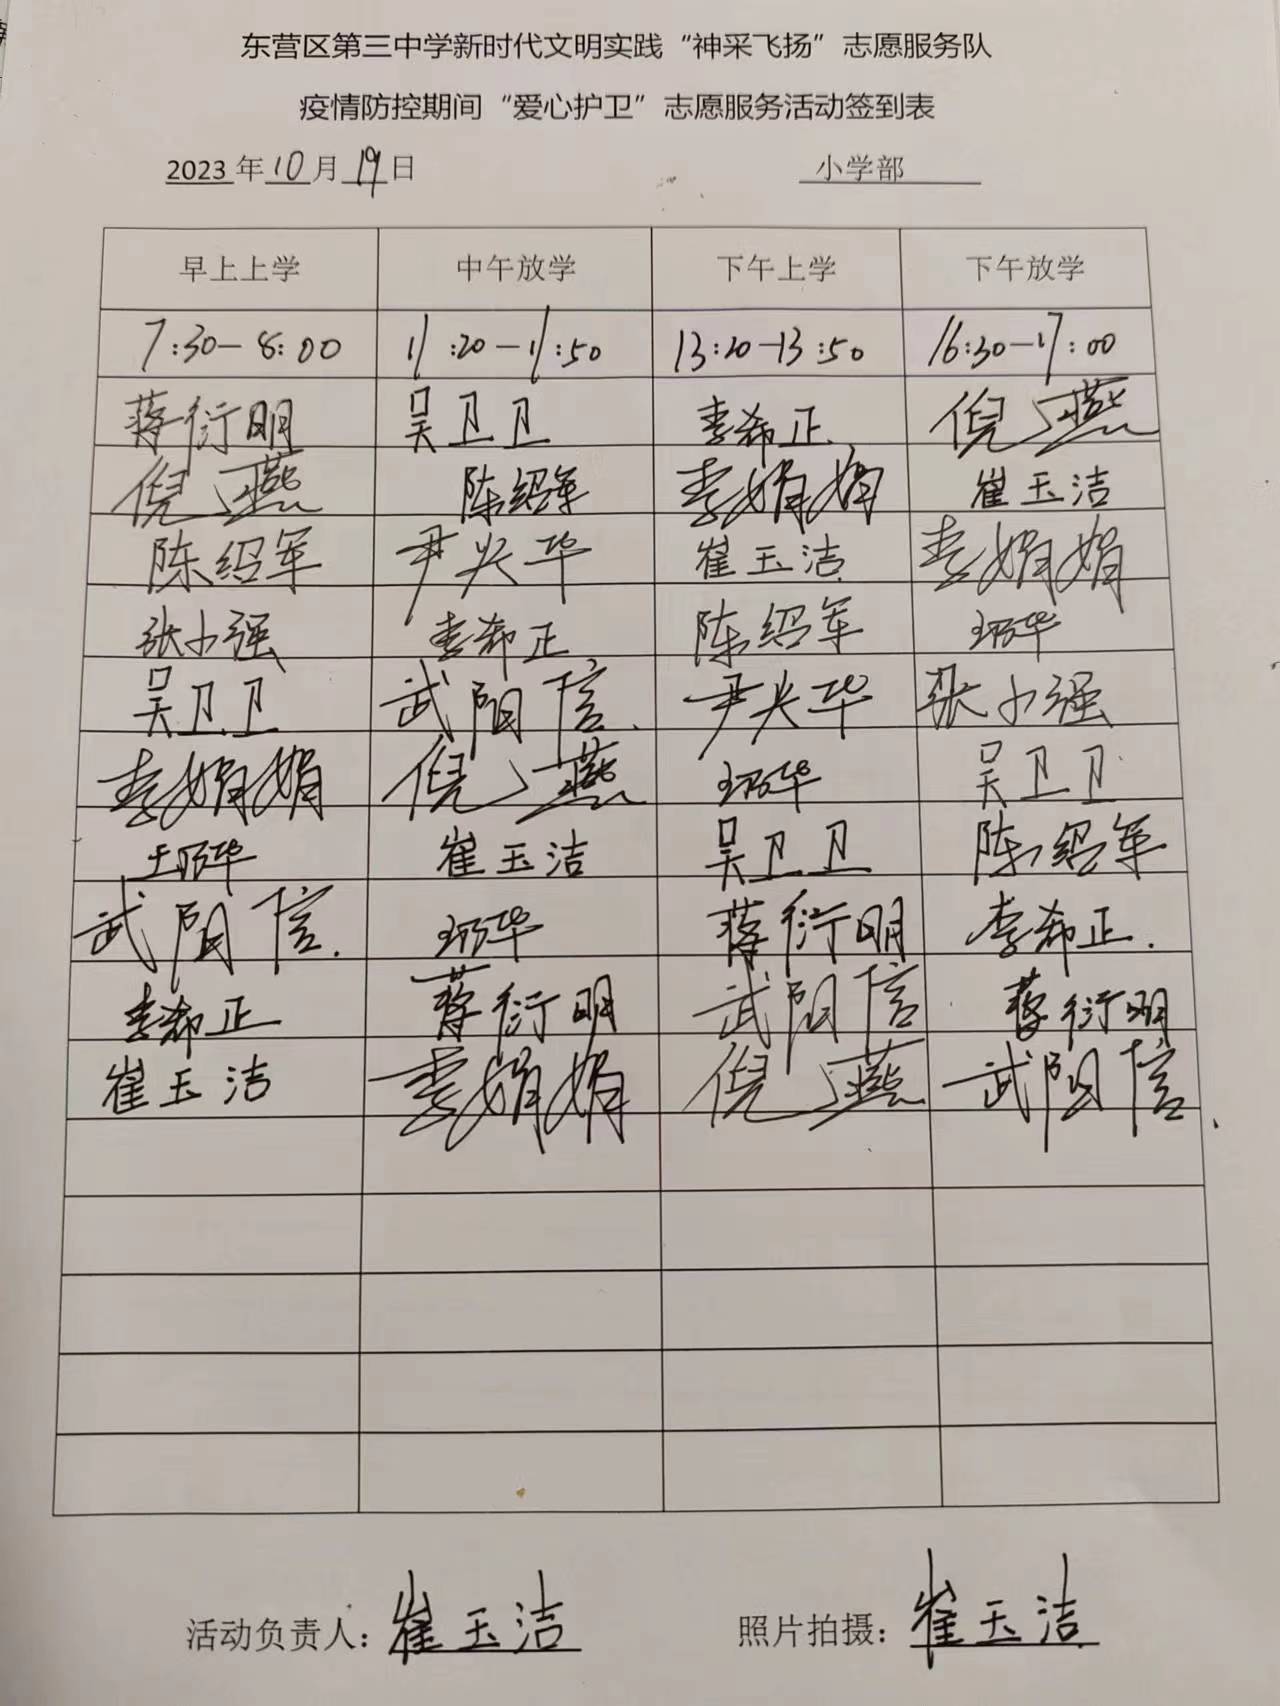 东营区第三中学新时代文明实践“神采飞扬”志愿服务队
疫情防控期间“爱心护卫”志愿服务活动签到表
2023年10月19日 小学部
早上上学 中午放学 下午上学 下午放学
7:30-8:00 11:20-11:50 13:20-13:50 16:30-17:00
蒋衍明 吴卫卫 李希正 倪燕
倪燕 陈绍军 李娟娟 崔玉洁
陈绍军 尹兴华 崔玉洁 李娟娟
张小强 李希正 陈绍军
吴卫卫 武阳信 尹兴华 张小强
李娟娟 倪燕 吴卫卫
崔玉洁 吴卫卫 陈绍军
武阳信 蒋衍明 李希正
李希正 蒋衍明 武阳信 蒋衍明
崔玉洁 李娟娟 倪燕 武阳信
活动负责人：崔玉洁 照片拍摄：崔玉洁